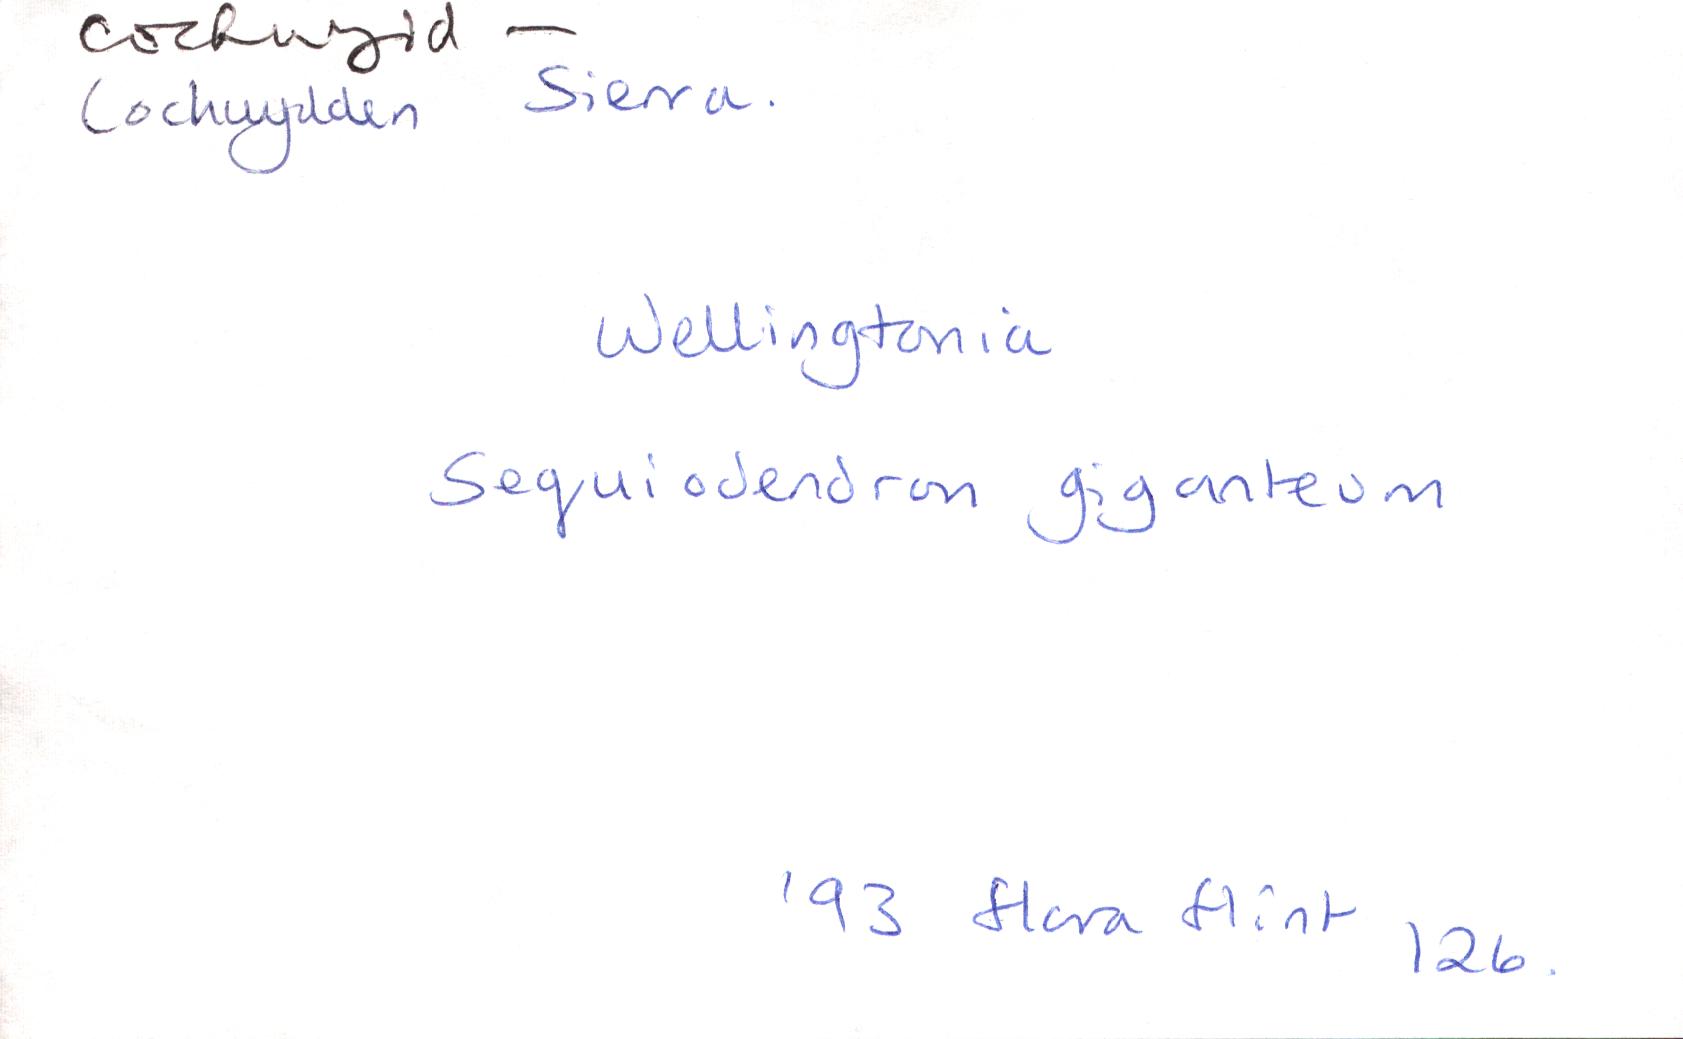 cochwyid —
Cochwydden Sierra.
Wellingtonia
Sequiodendron giganteum
'93 flora flint 126.